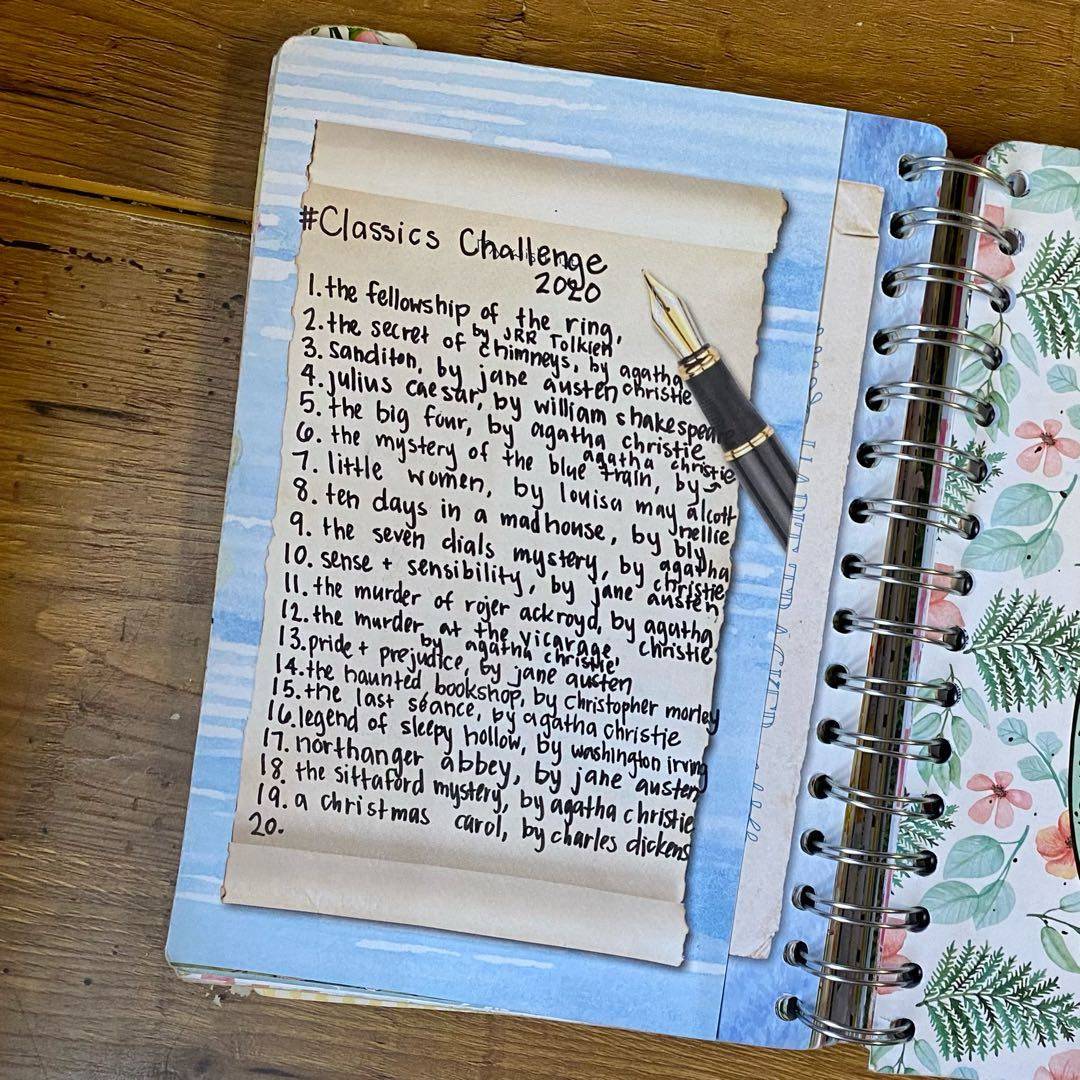 #Classics Challenge
2020
1. the fellowship of the ring,
by JRR Tolkien
2. the secret of chimneys, by agatha
christie
3. Sanditon, by jane austen
4. julius caesar, by william shakespeare
5. the big four, by agatha christie
agatha christie
6. the mystery of the blue train, by
7. little women, by louisa may alcott
nellie
8. ten days in a madhouse, by bly
9. the seven dials mystery, by agatha
christie
10. sense + sensibility, by jane austen
11. the murder of rojer ackroyd, by agatha
christie
12. the murder at the vicarage,
by agatha christie
13. pride + prejudice, by jane austen
14. the haunted bookshop, by christopher morley
15. the last séance, by agatha christie
16. legend of sleepy hollow, by washington irving
17. northanger abbey, by jane austen
18. the sittaford mystery, by agatha christie
19. a christmas carol, by charles dickens
20.